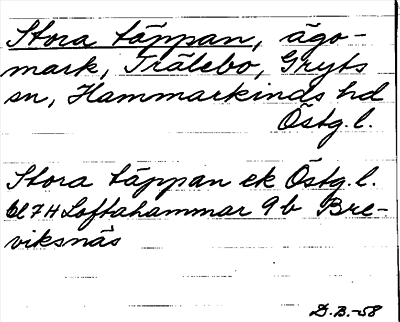 Stora täppan, ägo-
mark, Trälebo, Gryts
sn, Hammarkinds hd
Östg.l.
Stora täppan ek Östg.l.
bl 7H Loftahammar 9b Bre-
viksnäs
D.B.-58